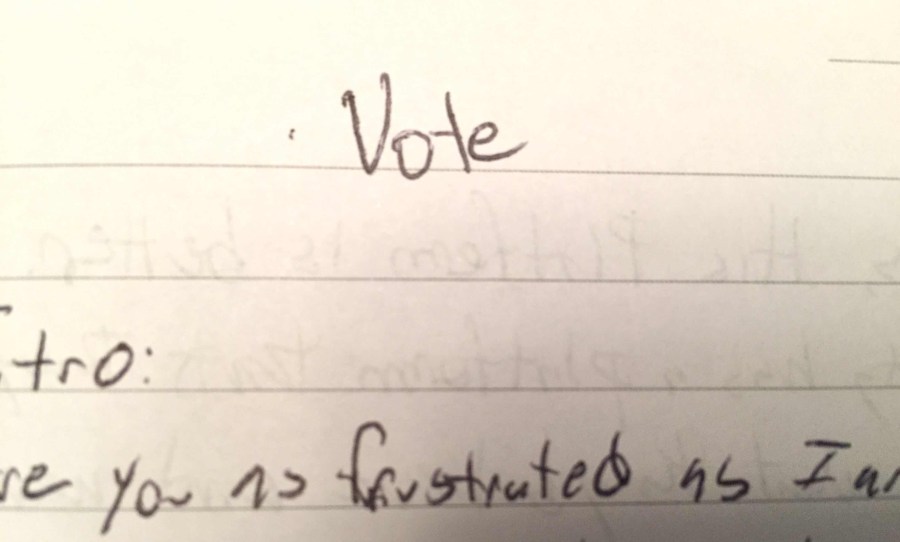 Vote
tro:
re you as frustrated as I am